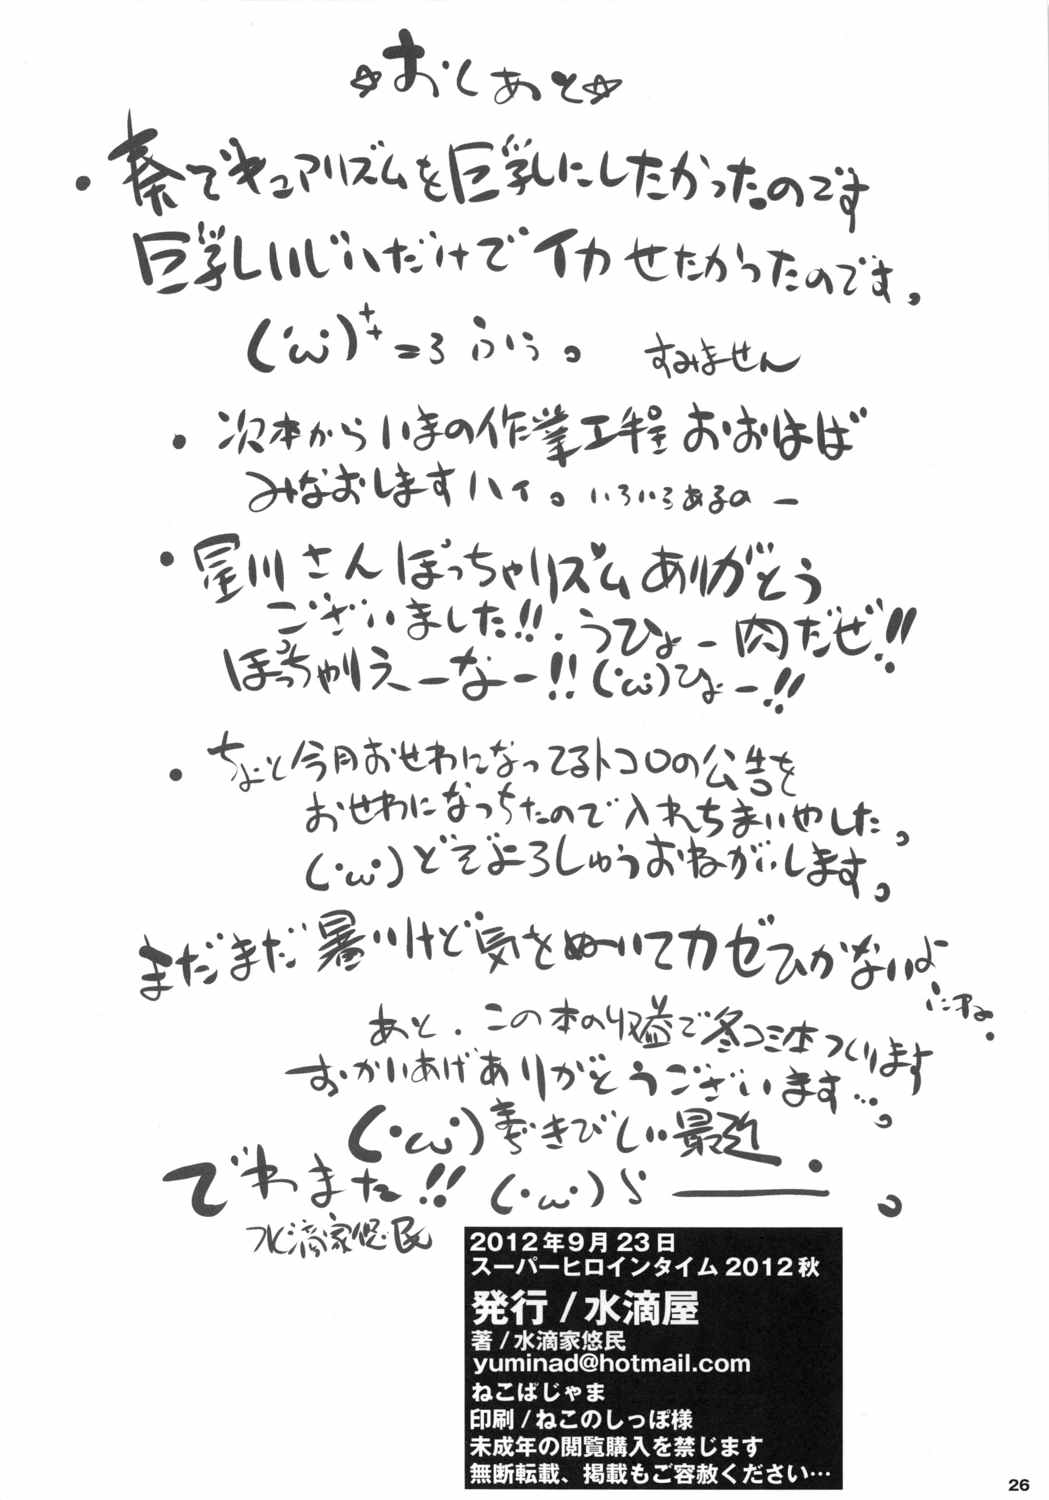 ☆おしあと☆
・奏でキュアリズムを巨乳にしたかったのです
巨乳いじいだけでイカせたかったのです。
(´ω`)⁺⁺=3 ふぅ。 すみません
・次本からいまの作業工程おおはば
みなおしますハイ。いろいろあるのー
・星川さんぽっちゃリズムありがとう
ございました!!。うひょー肉だぜ!!
ぽっちゃりえーなー!!(´ω`)ひょー!!
・ちょと今月おせわになってるトコロの公告を
おせわになっちたので入れちまいやした。
(・ω・)どぞよろしゅうおねがいします。
まだまだ暑いけど気をぬいてカゼひかないよ
にネ。
あと、この本の収益で冬コミ本つくります
おかいあげありがとうございます…。
(・ω・)きびしい最近
でわまた!!(・ω・)ノシ ――。
水滴家悠民
2012年9月23日
スーパーヒロインタイム2012秋
発行/水滴屋
著/水滴家悠民
yuminad@hotmail.com
ねこぱじゃま
印刷/ねこのしっぽ様
未成年の閲覧購入を禁じます
無断転載、掲載もご容赦ください…
26